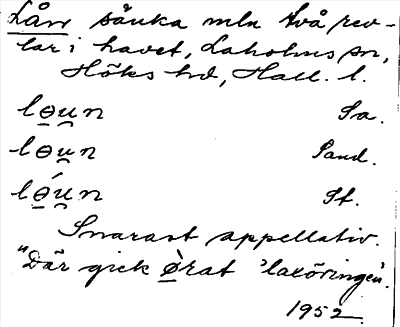 Lån sänka mln två rev-
lar i havet, Laholms sn,
Höks hd, Hall. l.
lɵu̯n Sa.
lɵu̯n Sand.
lɵ́u̯n St.
Snarast appellativ.
"Där gick ø̀rat 'laxöringen'.
1952.